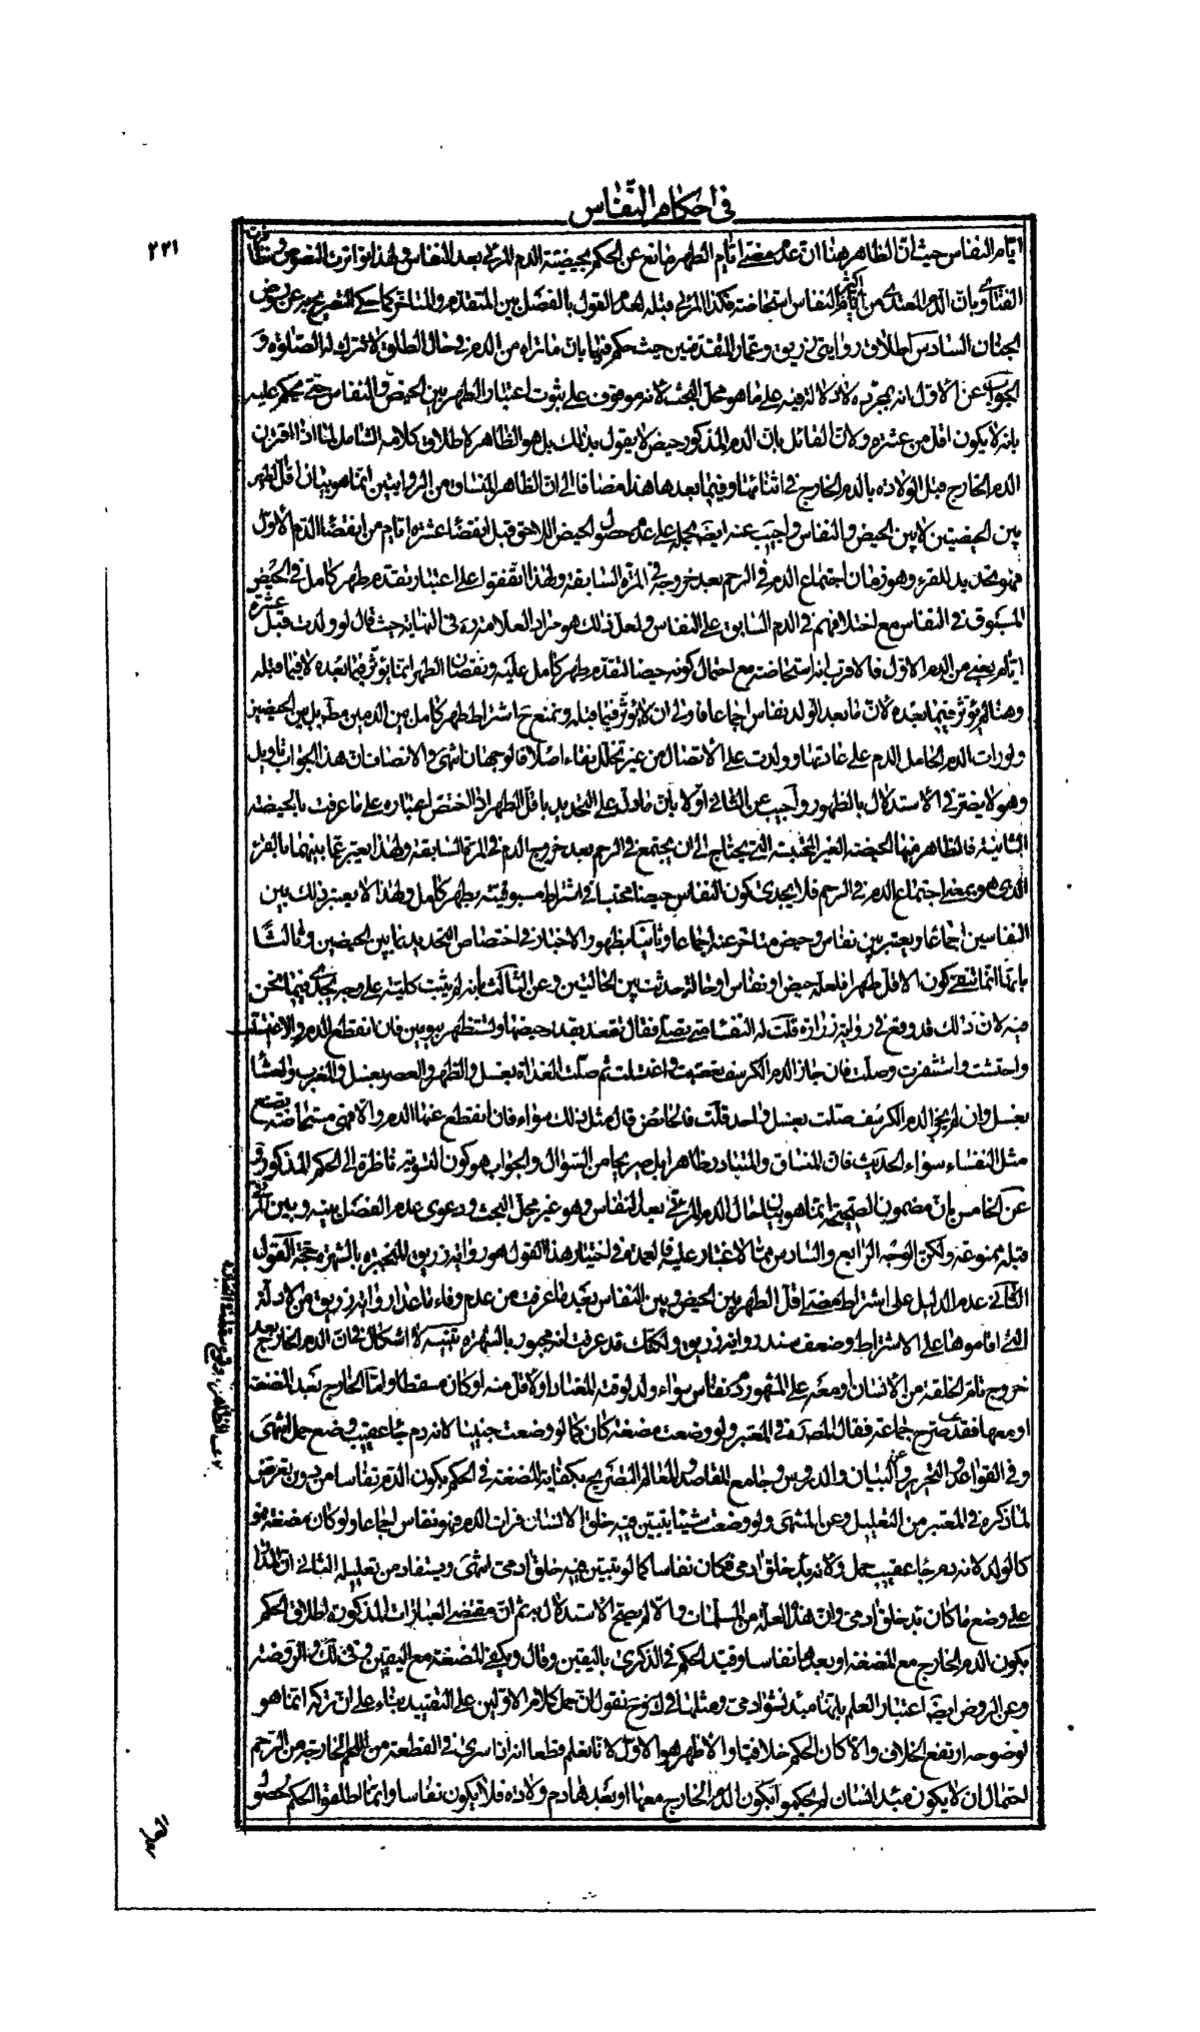 في احكام النفاس
٢٢١
ايام النفاس حيث ان الظاهر هنا ان عدم مضي ايام الطهر مانع عن الحكم بحيضية الدم المرئي بعد النفاس ولهذا تواترت النصوص وتطابقت
الفتاوى بان الدم المتعدي من اكثر ايام النفاس استحاضة فكذا المرئي قبله لعدم القول بالفصل بين المتقدم والمتاخر كما حكي التصريح به عن روض
الجنان السادس اطلاق روايتي زريق وعمار المتقدمتين حيث حكم فيهما بان ما تراه من الدم في حال الطلق لا تترك له الصلوة و
الجواب عن الاول انه بمجرده لا دلالة فيه على ما هو محل البحث لانه موقوف على ثبوت اعتبار الطهر بين الحيض والنفاس حتى يحكم عليه
بانه لا يكون اقل من عشرة ولان القائل بان الدم المذكور حيض لا يقول بذلك بل هو الظاهر لاطلاق كلامه الشامل لما اذا اقترن
الدم الخارج قبل الولادة بالدم الخارج في اثنائها وفيما بعدها هذا مضافا الى ان الظاهر المنساق من الروايتين انما هو بيان اقل الطهر
بين الحيضتين لا بين الحيض والنفاس واجيب عنه ايضا بحمله على عدم حصول الحيض اللاحق قبل انقضاء عشرة ايام من انقضاء الدم الاول
فهو تحديد للقرء وهو زمان اجتماع الدم في الرحم بعد خروجه في المرة السابقة ولهذا اتفقوا على اعتبار تقدم طهر كامل في الحيض
المسبوق في النفاس مع اختلافهم في الدم السابق على النفاس ولعل ذلك هو مراد العلامة ره في النهاية حيث قال لو ولدت قبل عشرة
ايام يعني من الدم الاول فالاقرب انه استحاضة مع احتمال كونه حيضا لتقدم طهر كامل عليه ونقصان الطهر انما يؤثر فيما بعده لا فيما قبله
وهنا لم يؤثر فيما بعده لان ما بعد الولد نفاس اجماعا فاولى ان لا يؤثر فيما قبله ونمنع ح اشتراط طهر كامل بين الدمين مطلقا بل بين الحيضتين
ولو رات الدم الحامل الدم على عادتها وولدت على الاتصال من غير تخلل نقاء اصلا فالوجهان انتهى والانصاف ان هذا الجواب تاويل
وهو لا يضر في الاستدلال بالظهور واجيب عن الثاني اولا بان ما دل على التحديد باقل الطهر اذا اختص اعتباره على ما عرفت بالحيضة
الثانية فالظاهر منها الحيضة الغير المحتبسة التي يحتاج الى ان يجتمع في الرحم بعد خروج الدم في المرة السابقة ولهذا يعبر عما بينهما بالقرء
الذي هو بمعنى اجتماع الدم في الرحم فلا يجدي كون النفاس حيضا محتبسا في اشتراط مسبوقيته بطهر كامل ولهذا لا يعتبر ذلك بين
النفاسين اجماعا ويعتبر بين نفاس وحيض متاخر عنه اجماعا وثانيا بظهور الاخبار في اختصاص التحديد بما بين الحيضين وثالثا
بانها انما تنفي كون الاقل طهرا فلعله حيض او نفاس او حالة حدثت بين الحالتين وعن الثالث بانه لم يثبت كلية على وجه يجدي فيما نحن
فيه لان ذلك قد وقع في رواية زرارة قلت له النفساء متى تصلي فقال تقعد بقدر حيضها وتستظهر بيومين فان انقطع الدم والا اغتسلت
واحتشت واستثفرت وصلت فان جاز الدم الكرسف تعصبت واغتسلت ثم صلت الغداة بغسل والظهر والعصر بغسل والمغرب والعشاء
بغسل وان لم يجز الدم الكرسف صلت بغسل واحد قلت فالحائض قال مثل ذلك سواء فان انقطع عنها الدم والا فهي مستحاضة تصنع
مثل النفساء سواء الحديث فان المنساق والمتبادر ظاهرا بل صريحا من السؤال والجواب هو كون التسوية ناظرة الى الحكم المذكور و
عن الخامس بان مضمون الصحيحة انما هو بيان حال الدم المرئي بعد النفاس وهو غير محل البحث ودعوى عدم الفصل بينه وبين المرئي
قبله ممنوعة ولكن الوجه الرابع والسادس مما لا غبار عليه فالعمدة في اختيار هذا القول هو رواية زريق المنجبرة بالشهرة حجة القول
الثاني عدم الدليل على اشتراط مضي اقل الطهر بين الحيض وبين النفاس بعد ما عرفت من عدم وفاء ما عدا رواية زريق من الادلة
التي اقاموها على الاشتراط وضعف سند رواية زريق ولكنك قد عرفت انه مجبور بالشهرة تنبيه لا اشكال في ان الدم الخارج بعد
خروج تام الخلقة من الانسان او معه على المشهور دم نفاس سواء ولد لوقته المعتاد او لاقل منه او كان مسقطا واما الخارج بعد المضغة
او معها فقد صرح جماعة فقال المصنف في المعتبر ولو وضعت مضغة كان كما لو وضعت جنينا لانه دم جاء عقيب وضع حمل انتهى
وفي القواعد والتحرير وعن البيان والدروس وجامع المقاصد والمعالم التصريح بكفاية المضغة في الحكم بكون الدم نفاسا من دون تعرض
لما ذكره في المعتبر من التعليل وعن المنتهى ولو وضعت شيئا يتبين فيه خلق الانسان فرات الدم فهو نفاس اجماعا ولو كان مضغة فهو
كالولد لانه دم جاء عقيب حمل ولانه بدء خلق ادمي فكان نفاسا كما لو تبين فيه خلق ادمي انتهى ويستفاد من تعليله الثاني ان المدار
على وضع ما كان بدء خلق ادمي وان هذه العلة من المسلمات والا لم يصح الاستدلال به ثم ان مقتضى العبارات المذكورة اطلاق الحكم
بكون الدم الخارج مع المضغة او بعدها نفاسا وقيد الحكم في الذكرى باليقين وقال ويكفي المضغة مع اليقين وفي لك والروضة
وعن الروض ايضا اعتبار العلم بانها مبدء نشوء ادمي ومثلها في لك وح نقول ان حمل كلام الاولين على التقييد بناء على ان تركه انما هو
لوضوحه ارتفع الخلاف والا كان الحكم خلافيا والاظهر هو الاول لانا نعلم قطعا انه ان سرى في القطعة من اللحم الخارجة من الرحم
احتمال ان لا يكون مبدء انسان لم يحكموا بكون الدم الخارج معها او بعدها دم ولادة فلا يكون نفاسا وانما اطلقوا الحكم لحصول